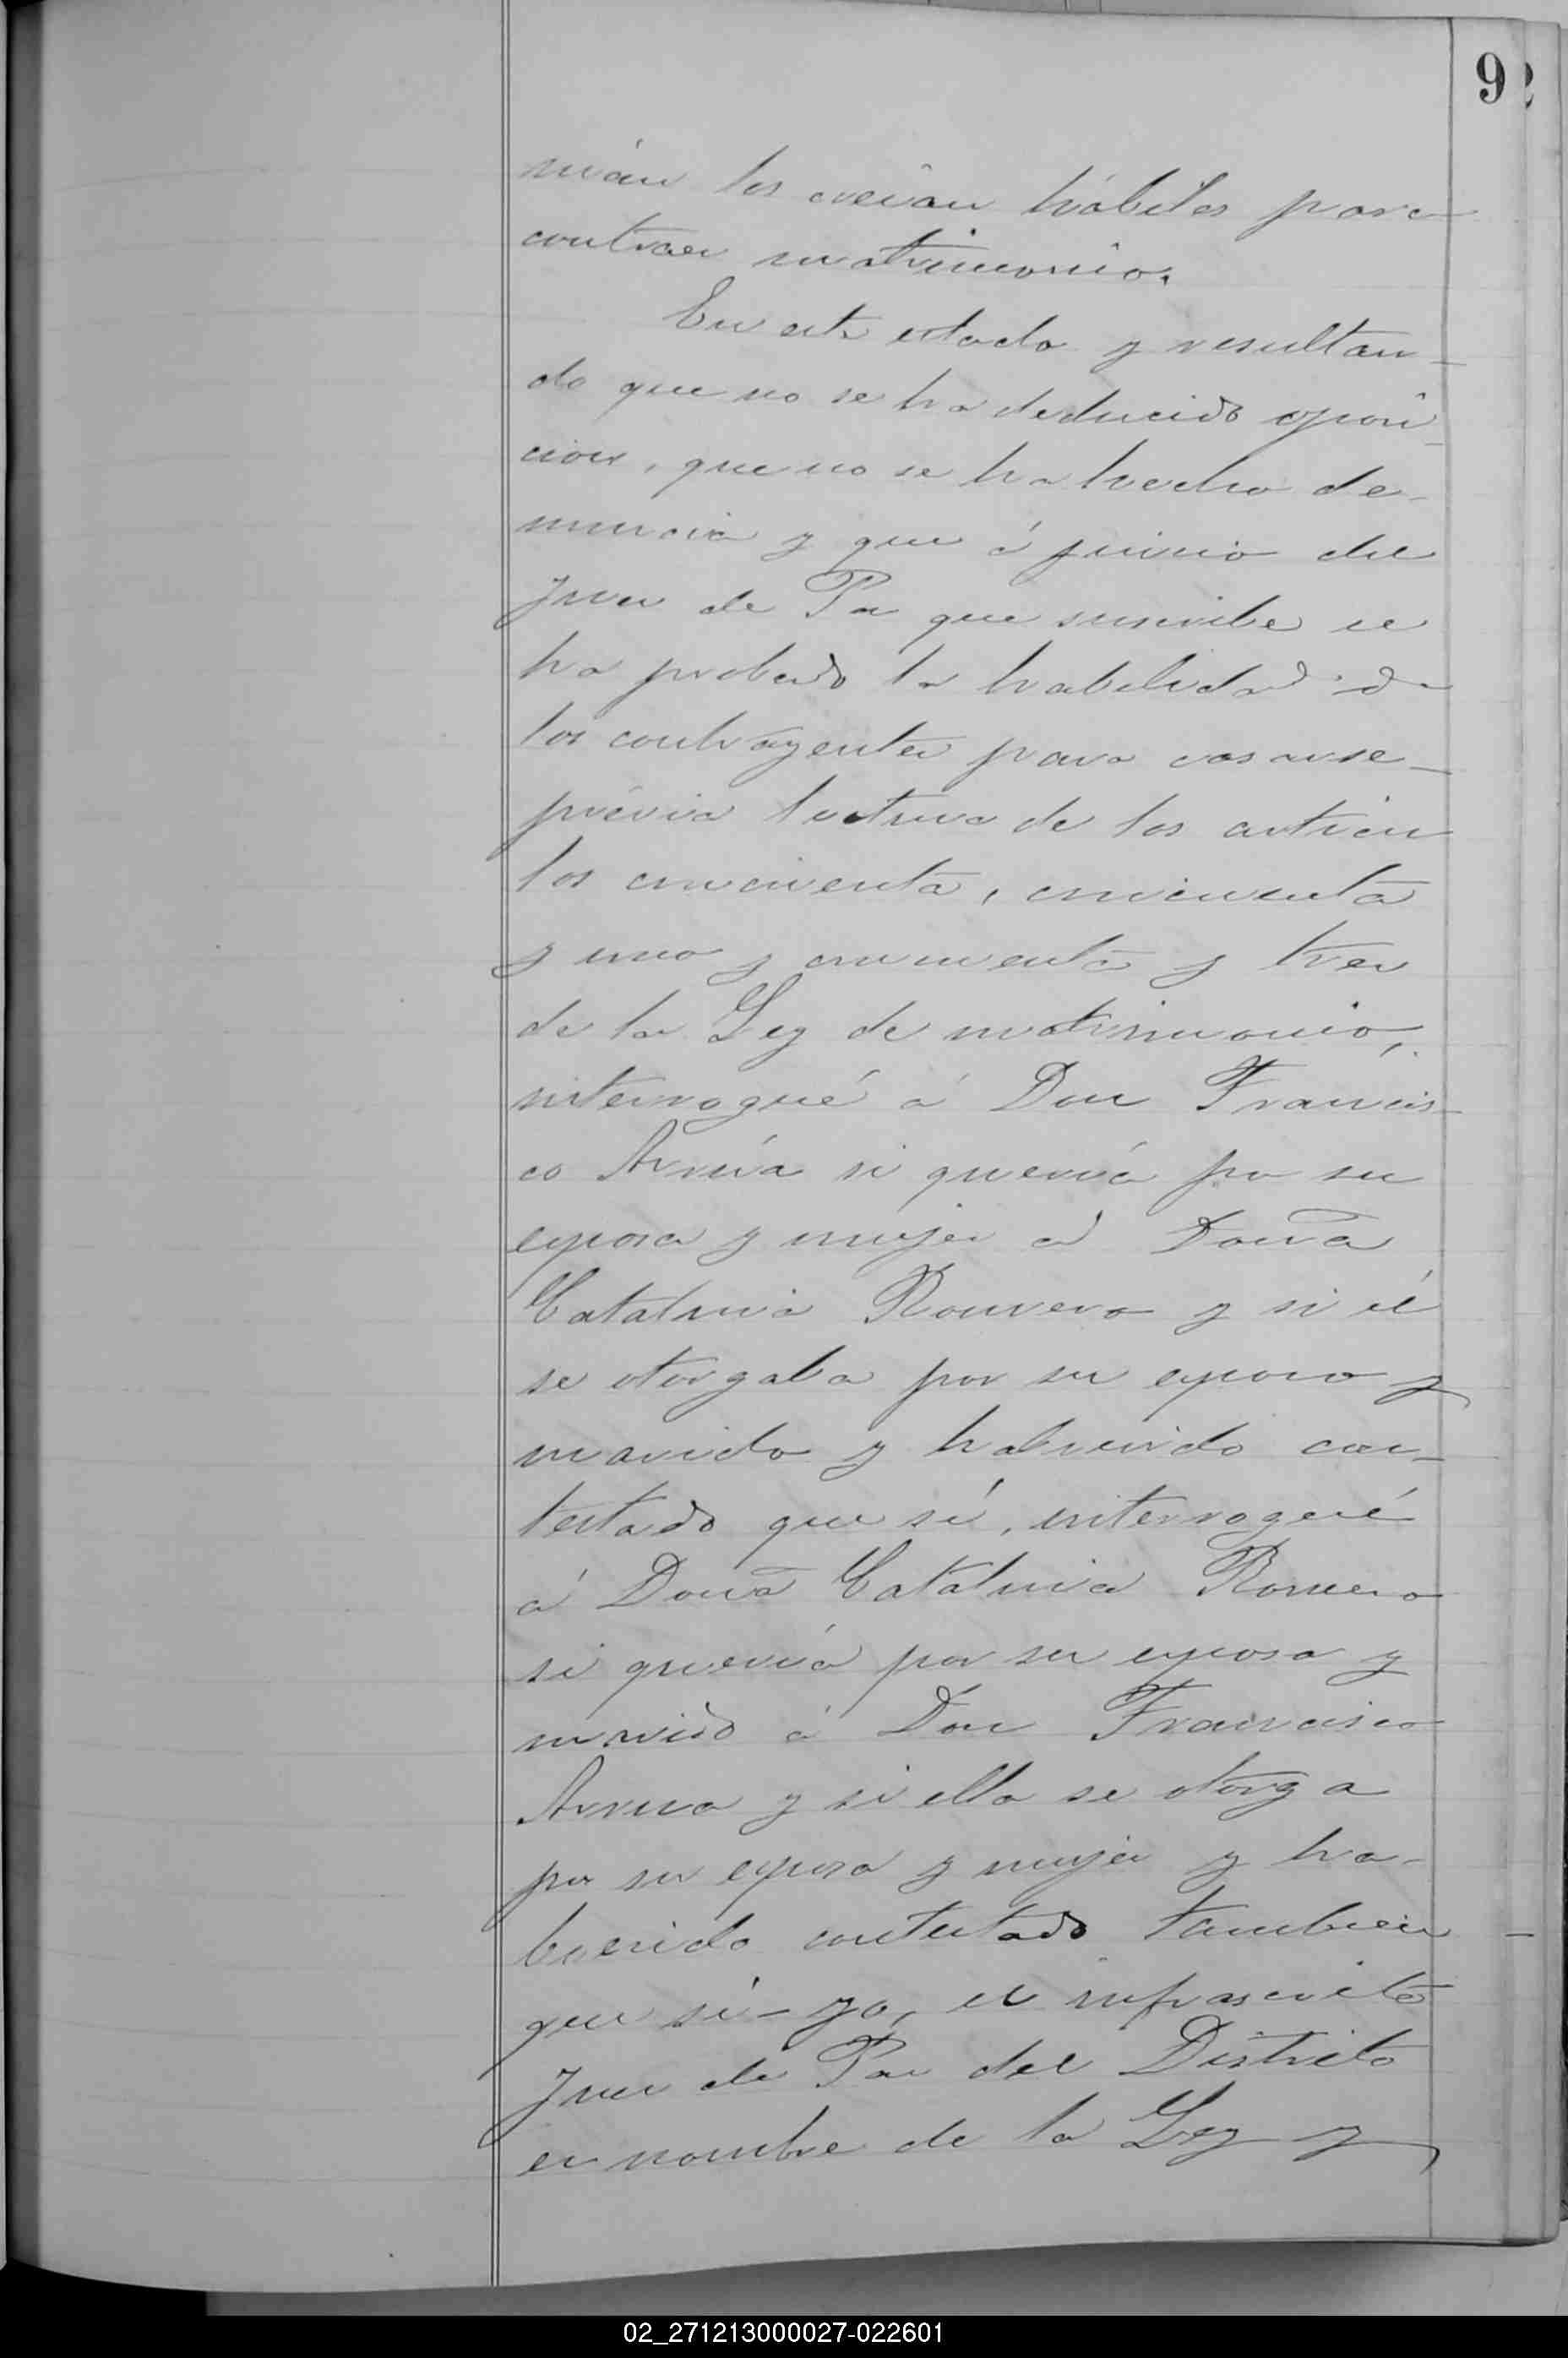 9
nián los creían hábiles para
contraer matrimonio.
En este estado y resultan-
do que no se ha deducido oposi-
cion, que no se ha hecho de-
nuncia y que á juicio del
Juez de Paz que suscribe se
ha probado la habilidad de
los contrayentes para casarse
prévia lectura de los artícu
los cincuenta, cincuenta
y uno y cincuenta y tres
de la Ley de matrimonio,
interrogué á Don Francis-
co Arrúa si quería por su
esposa y mujer á Doña
Catalina Romero y si él
se otorgaba por su esposo y
marido y habiendo con-
testado que sí, interrogué
á Doña Catalina Romero
si quería por su esposo y
marido á Don Francisco
Arrua y si ella se otorga
por su esposa y mujer y ha-
biendo contestado tambien
que sí - yo, el infrascrito
Juez de Paz del Distrito
en nombre de la Ley y
02_271213000027-022601